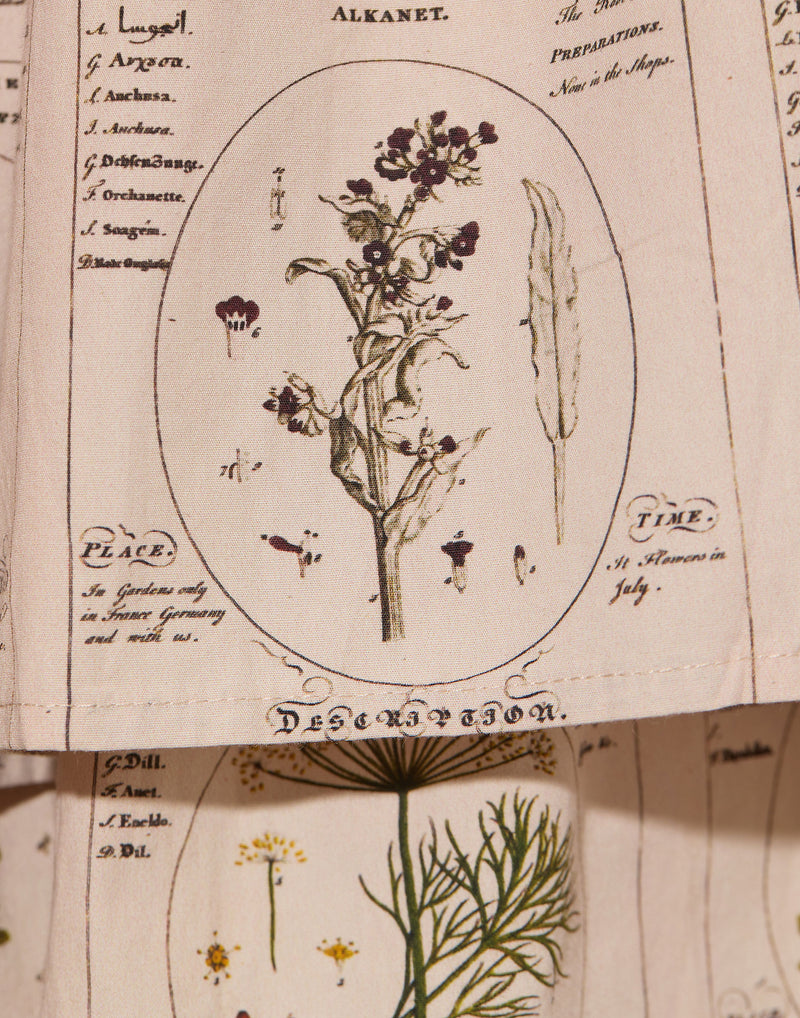 ALKANET.
A. انجوسا.
G. Αρχσσα.
L. Anchusa.
I. Anchusa.
G. OchsenZunge.
F. Orchanette.
S. Soagem.
The
PREPARATIONS.
None in the Shops.
PLACE.
In Gardens only
in France Germany
and with us.
TIME.
It Flowers in
July.
DESCRIPTION.
G. Dill.
F. Anet.
S. Eneldo.
D. Dil.